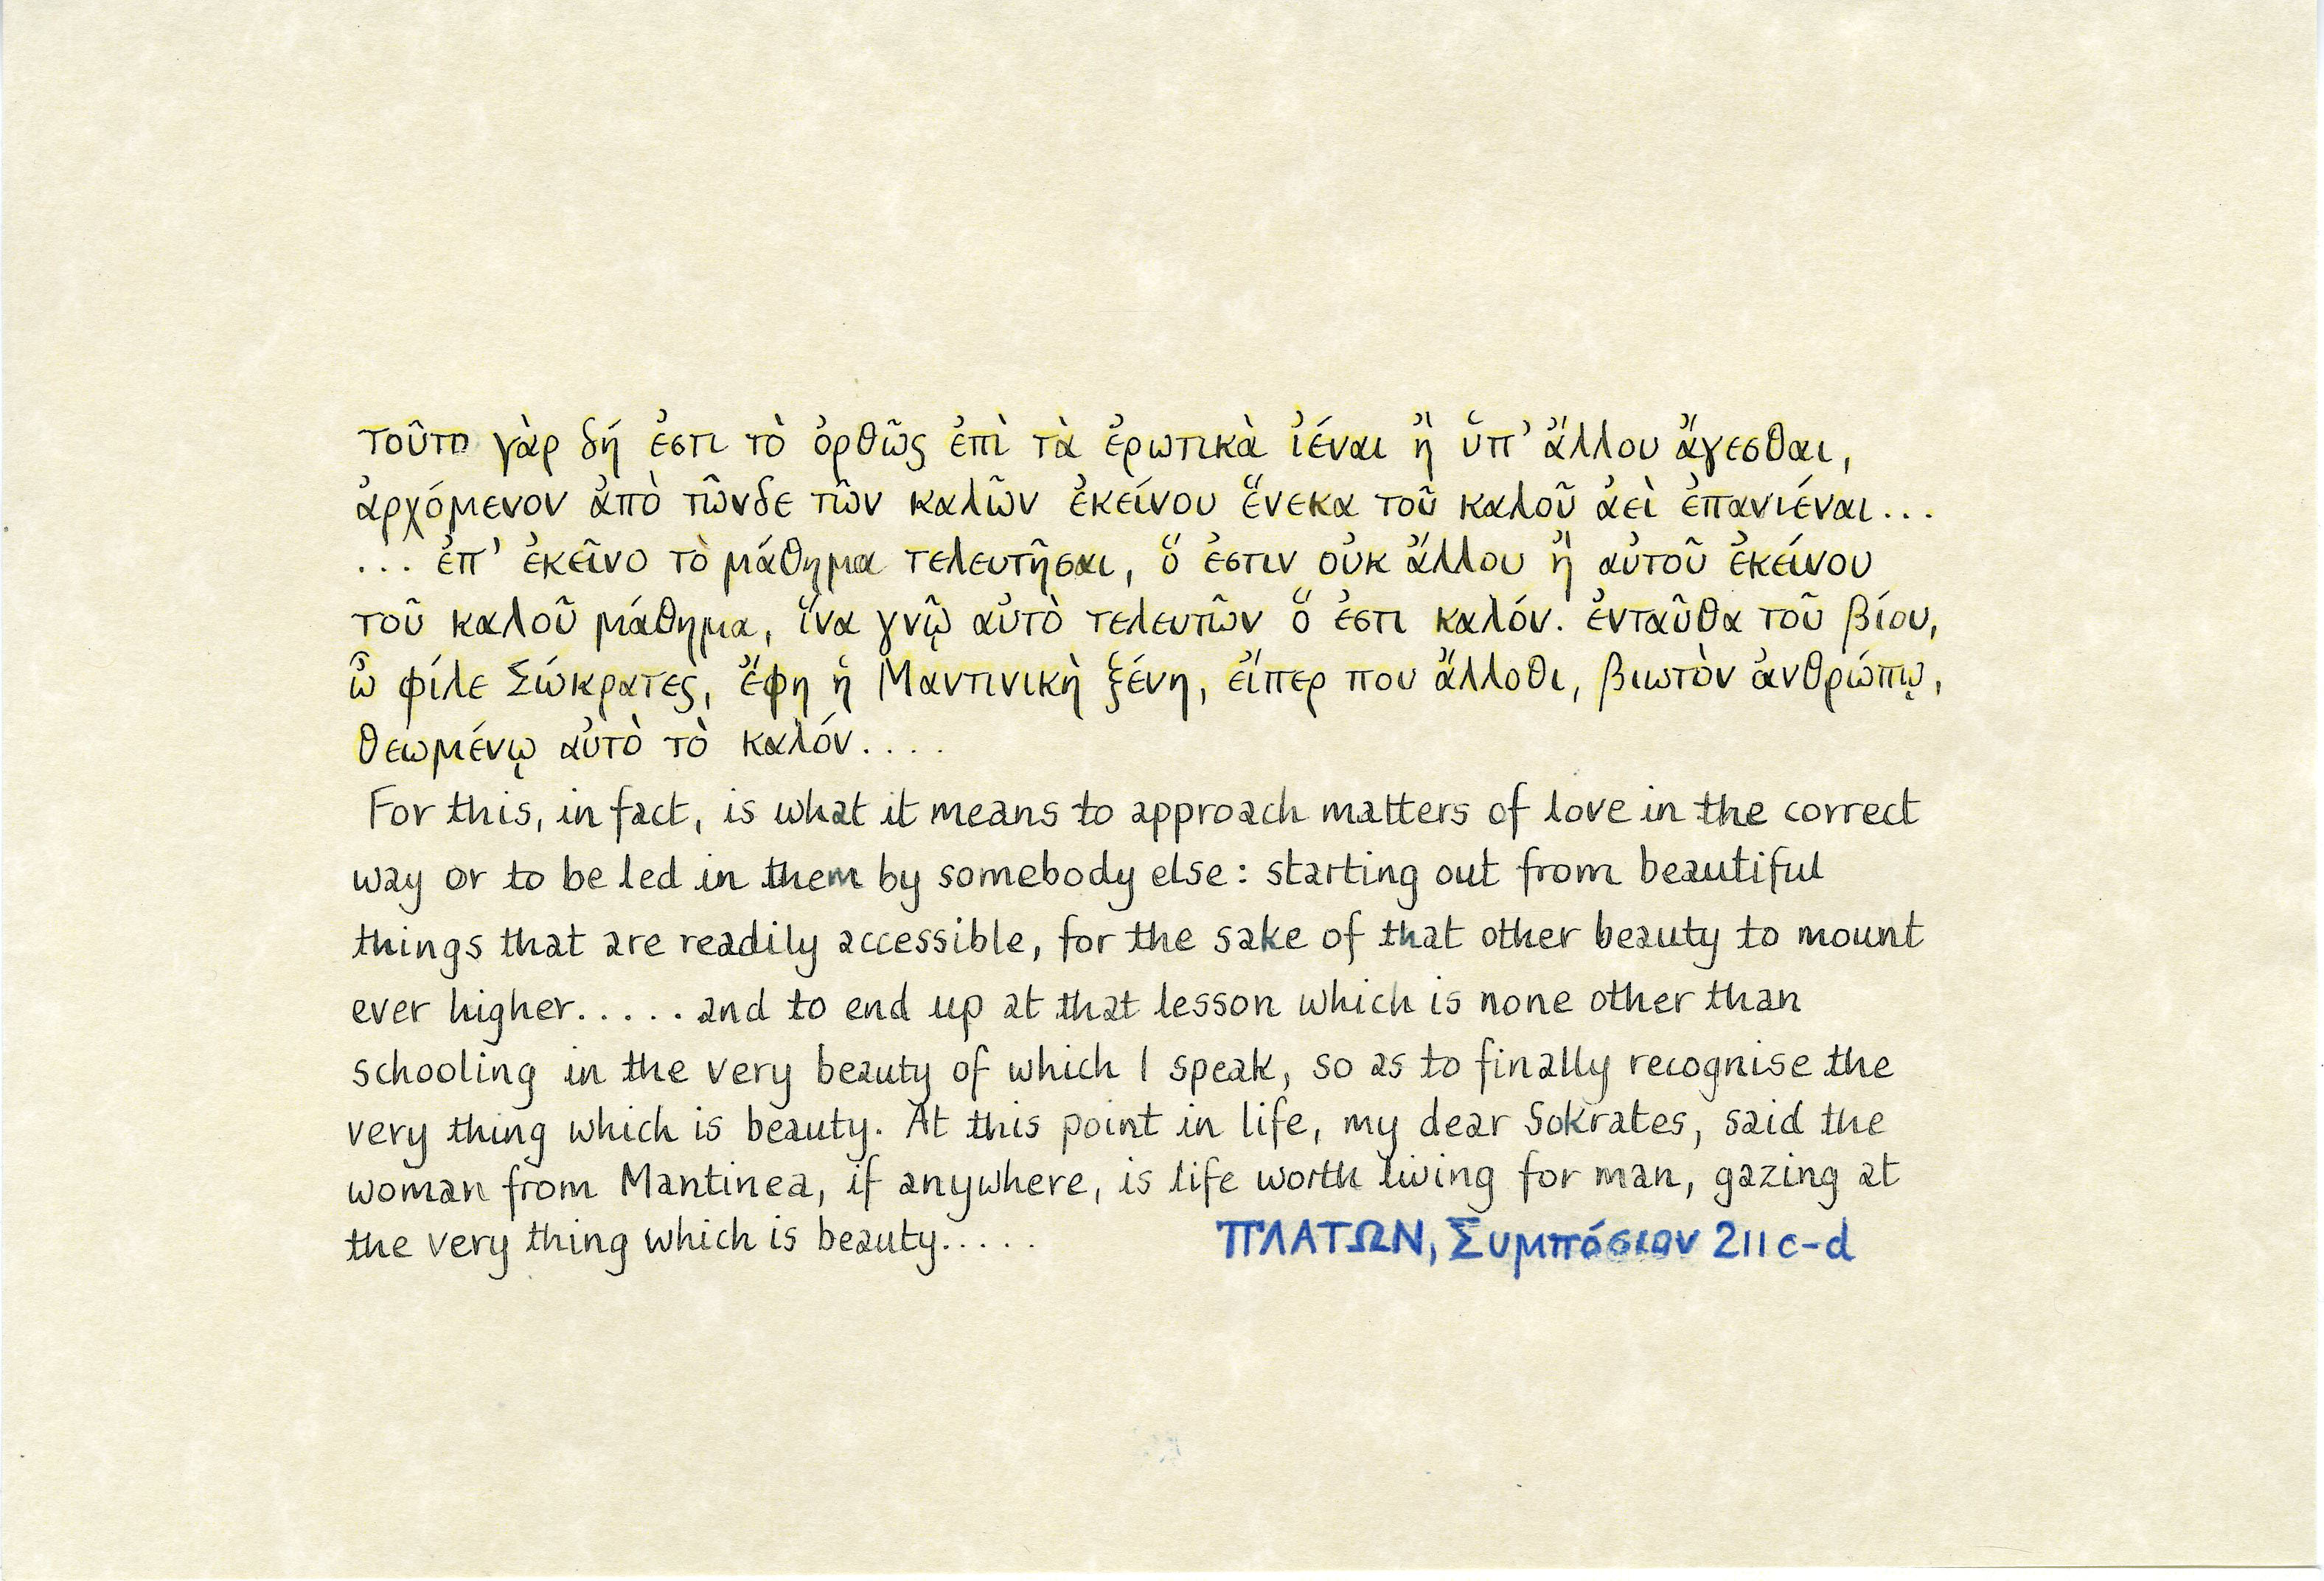 τοῦτο γὰρ δή ἐστι τὸ ὀρθῶς ἐπὶ τὰ ἐρωτικὰ ἰέναι ἢ ὕπ' ἄλλου ἄγεσθαι,
ἀρχόμενον ἀπὸ τῶνδε τῶν καλῶν ἐκείνου ἕνεκα τοῦ καλοῦ ἀεὶ ἐπανιέναι...
... ἐπ' ἐκεῖνο τὸ μάθημα τελευτῆσαι, ὅ ἐστιν οὐκ ἄλλου ἢ αὐτοῦ ἐκείνου
τοῦ καλοῦ μάθημα, ἵνα γνῷ αὐτὸ τελευτῶν ὅ ἐστι καλόν. ἐνταῦθα τοῦ βίου,
ὦ φίλε Σώκρατες, ἔφη ἡ Μαντινικὴ ξένη, εἴπερ που ἄλλοθι, βιωτὸν ἀνθρώπῳ,
θεωμένῳ αὐτὸ τὸ καλόν....
For this, in fact, is what it means to approach matters of love in the correct
way or to be led in them by somebody else: starting out from beautiful
things that are readily accessible, for the sake of that other beauty to mount
ever higher..... and to end up at that lesson which is none other than
schooling in the very beauty of which I speak, so as to finally recognise the
very thing which is beauty. At this point in life, my dear Sokrates, said the
woman from Mantinea, if anywhere, is life worth living for man, gazing at
the very thing which is beauty.....
ΠΛΑΤΩΝ, Συμπόσιον 211c-d